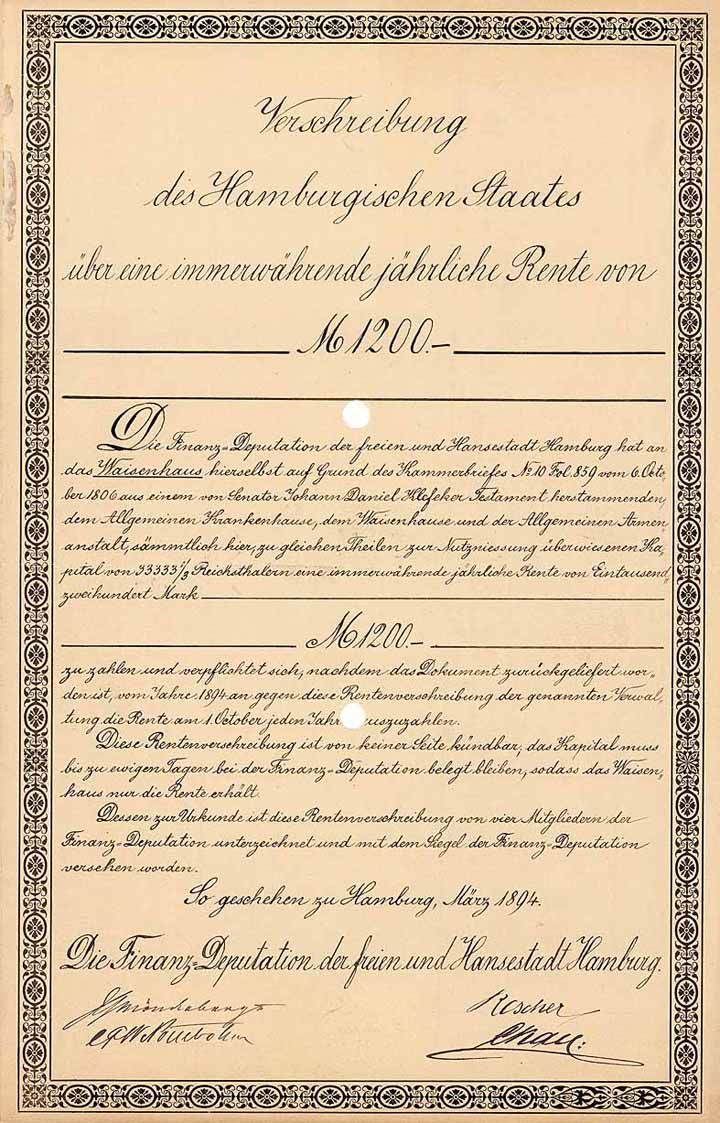 Verschreibung
des Hamburgischen Staates
über eine immerwährende jährliche Rente von
M 1200.–
Die Finanz-Deputation der freien und Hansestadt Hamburg hat an
das Waisenhaus hierselbst auf Grund des Kammerbriefes No 10 Fol. 859 vom 6. Octo-
ber 1806 aus einem von Senator Johann Daniel Klefeker Testament herstammenden,
dem Allgemeinen Krankenhause, dem Waisenhause und der Allgemeinen Armen,
anstalt, sämmtlich hier, zu gleichen Theilen zur Nutzniessung überwiesenen Ka-
pital von 33333 1/3 Reichsthalern eine immerwährende jährliche Rente von Eintausend-
zweihundert Mark
M 1200.–
zu zahlen und verpflichtet sich, nachdem das Dokument zurückgeliefert wor-
den ist, vom Jahre 1894 an gegen diese Rentenverschreibung der genannten Verwal-
tung die Rente am 1. October jeden Jahr uszuzahlen.
Diese Rentenverschreibung ist von keiner Seite kündbar, das Kapital muss
bis zu ewigen Tagen bei der Finanz-Deputation belegt bleiben, sodass das Waisen-
haus nur die Rente erhält.
Dessen zur Urkunde ist diese Rentenverschreibung von vier Mitgliedern der
Finanz-Deputation unterzeichnet und mit dem Siegel der Finanz-Deputation
versehen worden.
So geschehen zu Hamburg, März 1894.
Die Finanz-Deputation der freien und Hansestadt Hamburg.
Roscher